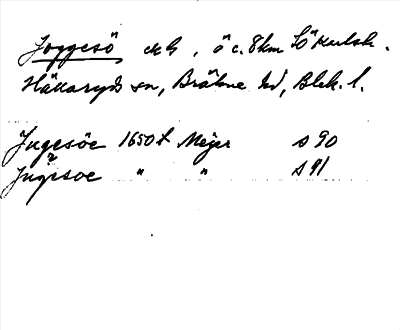 Joggesö ekG, ö c. 8 km SÖ Karlsh.
Hällaryds sn, Bräkne hd, Blek. l.
Jugesöe 1650t Mejer s 90
Jugesoe " " s 91